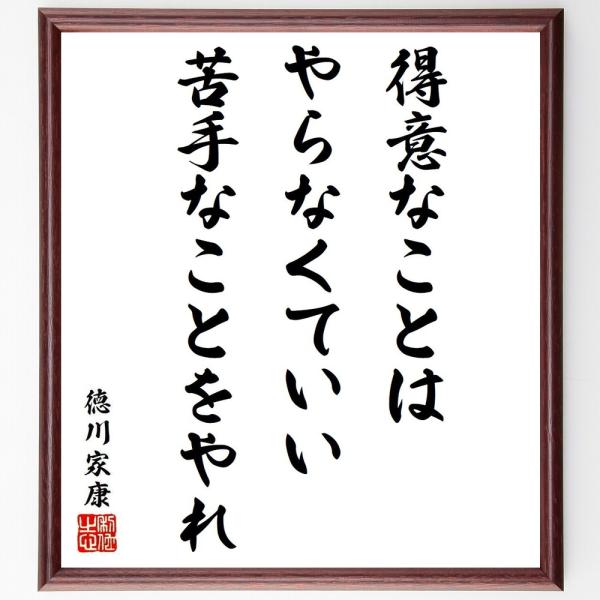 得意なことは
やらなくていい
苦手なことをやれ
徳川家康